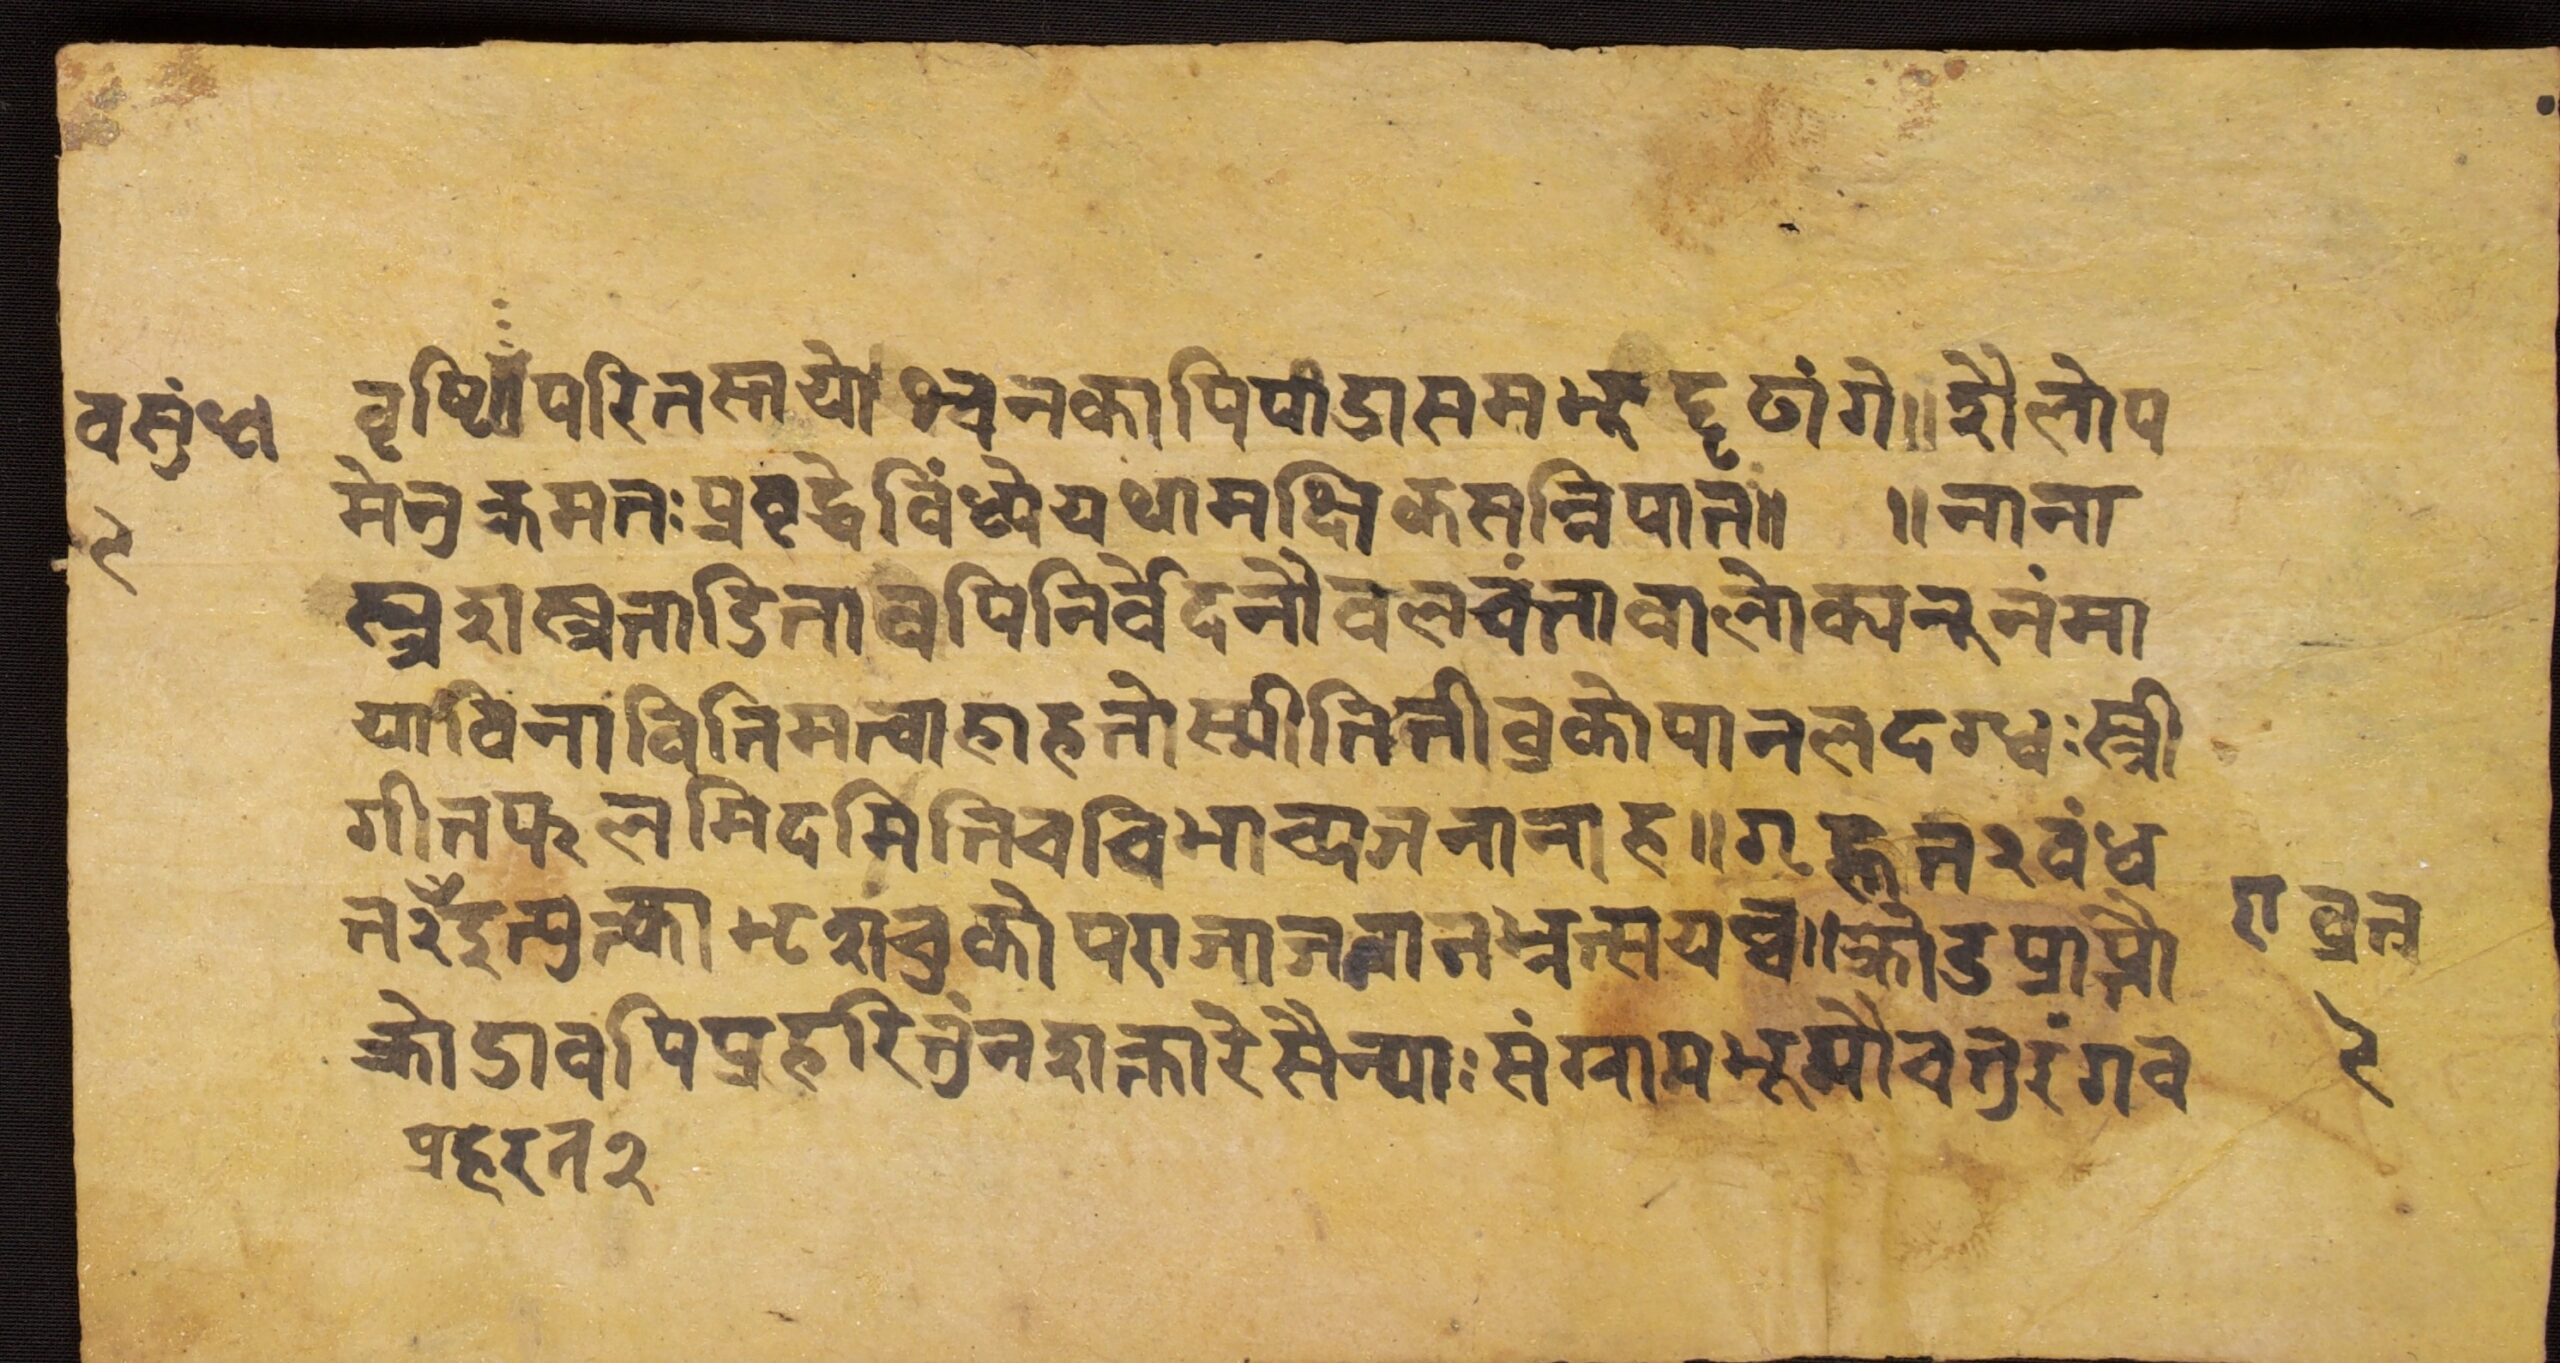 वसुंध्रा
१
वृष्टिः परितस्तयोश्च न कापि पीडा समभूद्दृढांगे ॥ शैलोप
मेनुक्रमतः प्रवृद्धे विंध्ये यथा मक्षिकसन्निपातं ॥ ॥ नाना
स्त्रशस्त्रताडितावपि निर्वेदनौ वलवंतावालोक्य नूनं मा
याविनाविति मत्वा हा हतोस्मीति तीव्रकोपानलदग्धः स्त्री
गीतफलमिदमिति च विभाव्य जनानाह ॥ गृह्णत २ वंध
त २ इत्युत्का भटांश्चुकोप राजा जवान भर्त्सयच्च ॥ क्रोडप्राप्तौ
क्रोडावपि प्रहरितुं न शक्तारे सैन्याः संग्रामभूमौ चतुरंगव
प्रहरत २
ग व्रत
१